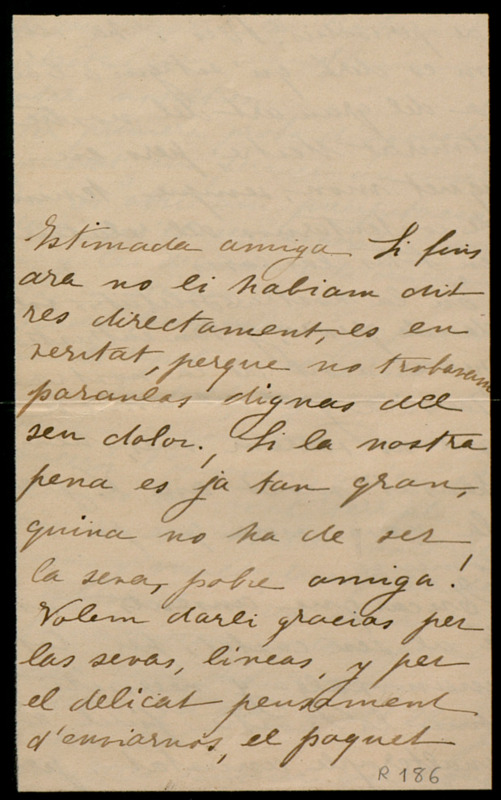 Estimada amiga Si fins
ara no li habiam dit
res directament, es en
veritat, perque no trobavam
paraulas dignas del
seu dolor., Si la nostra
pena es ja tan gran,
quina no ha de ser
la seva, pobre amiga!
Volem darli gracias per
las sevas, lineas, y per
el delicat pensament
d'enviarnos, el paquet
R 186